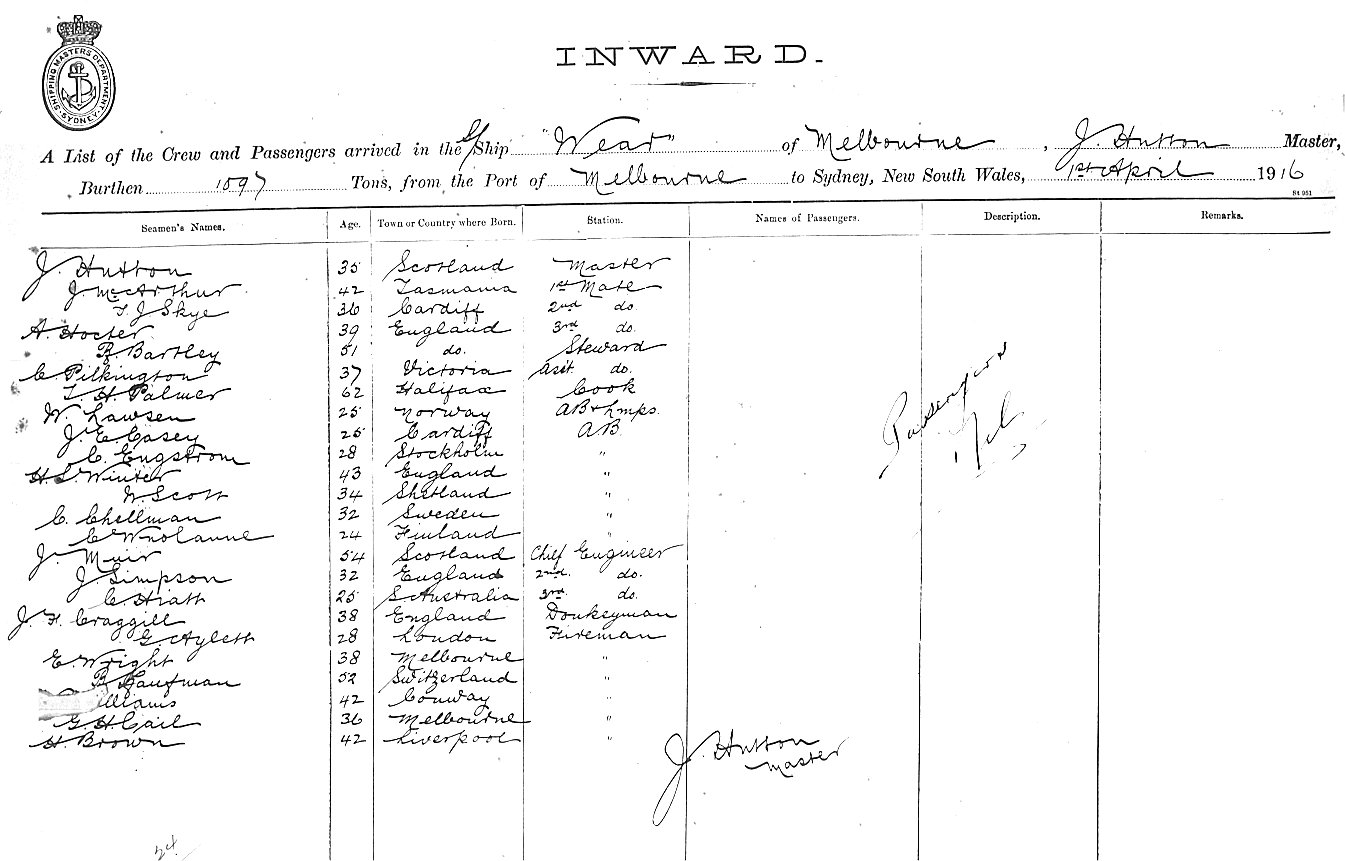 SHIPPING MASTERS DEPARTMENT. SYDNEY.
INWARD.
A List of the Crew and Passengers arrived in the S/Ship "Wear" of Melbourne, J. Hutton Master,
Burthen 1897 Tons, from the Port of Melbourne to Sydney, New South Wales, 1st April 1916
St 951
Seamen's Names. Age. Town or Country where Born. Station. Names of Passengers. Description. Remarks.
J. Hutton 35 Scotland Master
J. McArthur 42 Tasmania 1st Mate
T. J Skye 36 Cardiff 2nd do.
A. Hocter 39 England 3rd do.
R. Bartley 51 do. Steward
C. Pilkington 37 Victoria Asst. do.
T. H. Palmer 62 Halifax Cook
W. Lawsen 25 Norway AB & Lmps.
J. E. Casey 25 Cardiff AB
C. Engstrom 28 Stockholm "
H. S. Winter 43 England "
W. Scott 34 Shetland "
C. Chellman 32 Sweden "
C. 24 Finland "
J. Muir 54 Scotland Chief Engineer
J. Simpson 32 England 2nd. do.
C. Hiatt 25 S Australia 3rd. do.
J. F. Craggill 38 England Donkeyman
G. Aylett 28 London Fireman
E. Wright 38 Melbourne "
R Kaufman 52 Switzerland "
illiams 42 Conway "
G. H. Cail 36 Melbourne "
H. Brown 42 Liverpool "
Passengers
Nil
J. Hutton
Master
24